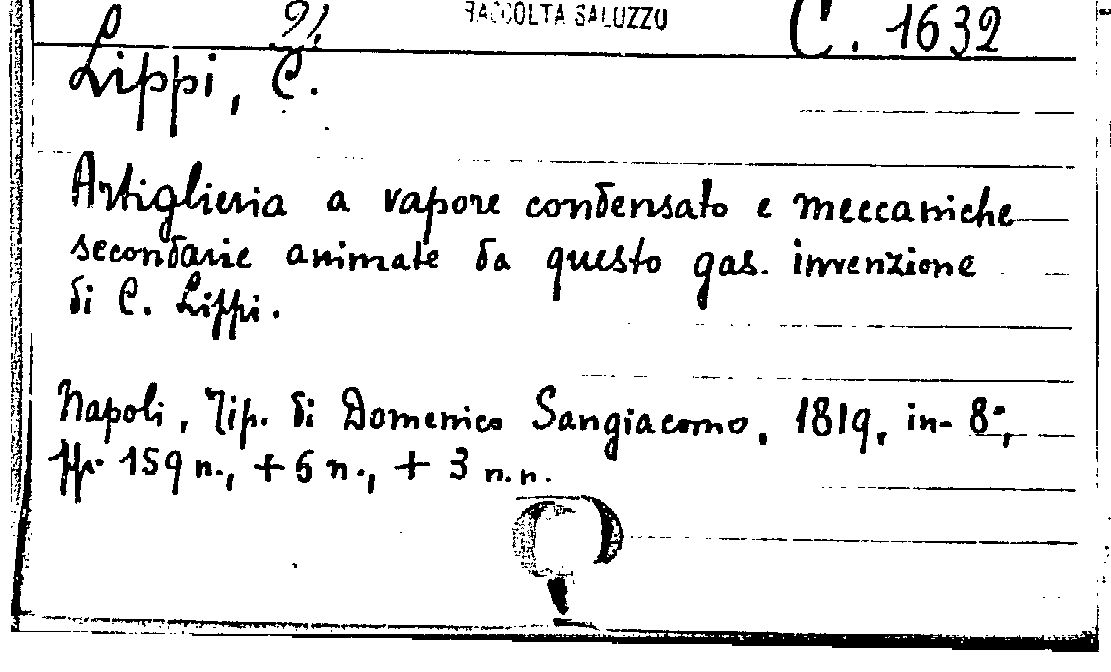 RACCOLTA SALUZZO
C. 1632
Lippi, C.
Artiglieria a vapore condensato e meccaniche
secondarie animate da questo gas. invenzione
di C. Lippi.
Napoli, Tip. di Domenico Sangiacomo, 1819, in-8°,
pp. 159 n., + 6 n., + 3 n.n.